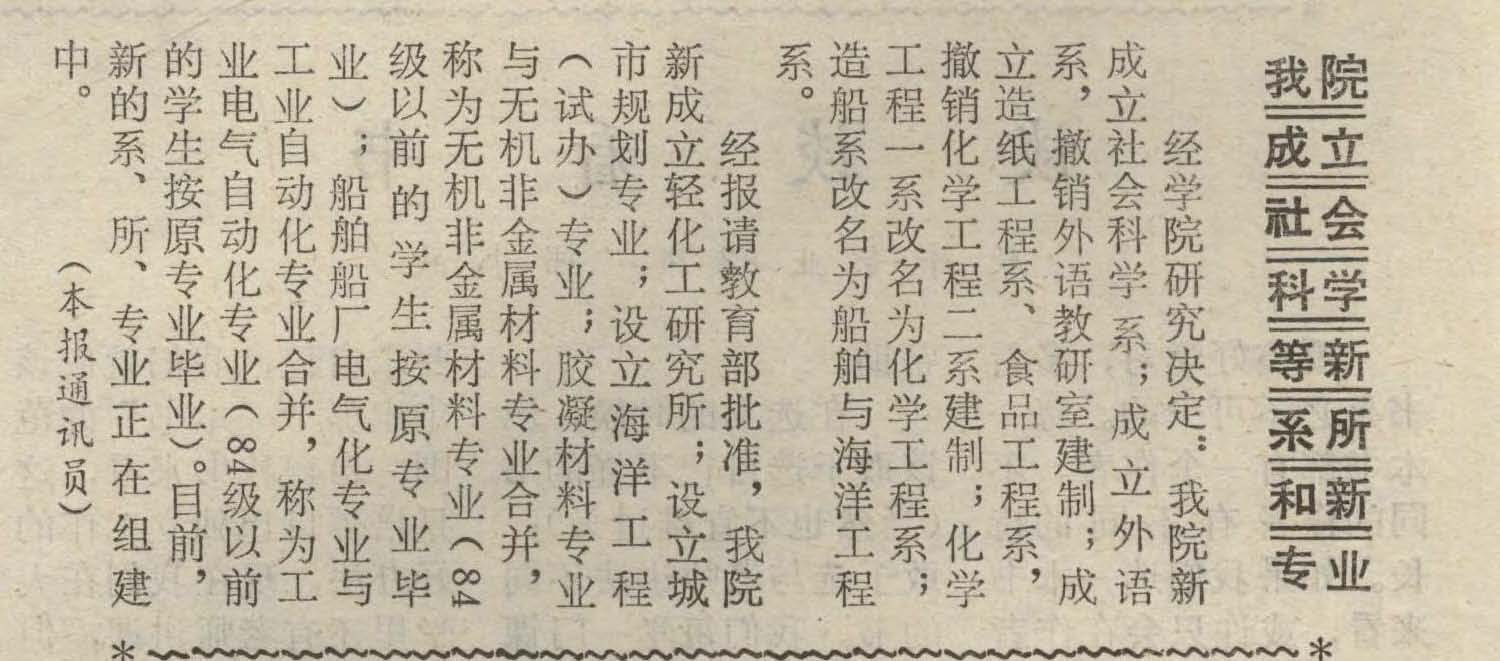 我院
成立
社会
科学
等新
系所
和新
专业
经学院研究决定:我院新
成立社会科学系;成立外语
系,撤销外语教研室建制;成
立造纸工程系、食品工程系,
撤销化学工程二系建制;化学
工程一系改名为化学工程系;
造船系改名为船舶与海洋工程
系。
经报请教育部批准,我院
新成立轻化工研究所;设立城
市规划专业;设立海洋工程
(试办)专业;胶凝材料专业
与无机非金属材料专业合并,
称为无机非金属材料专业(84
级以前的学生按原专业毕
业);船舶船厂电气化专业与
工业自动化专业合并,称为工
业电气自动化专业(84级以前
的学生按原专业毕业)。目前,
新的系、所、专业正在组建
中。 (本报通讯员)